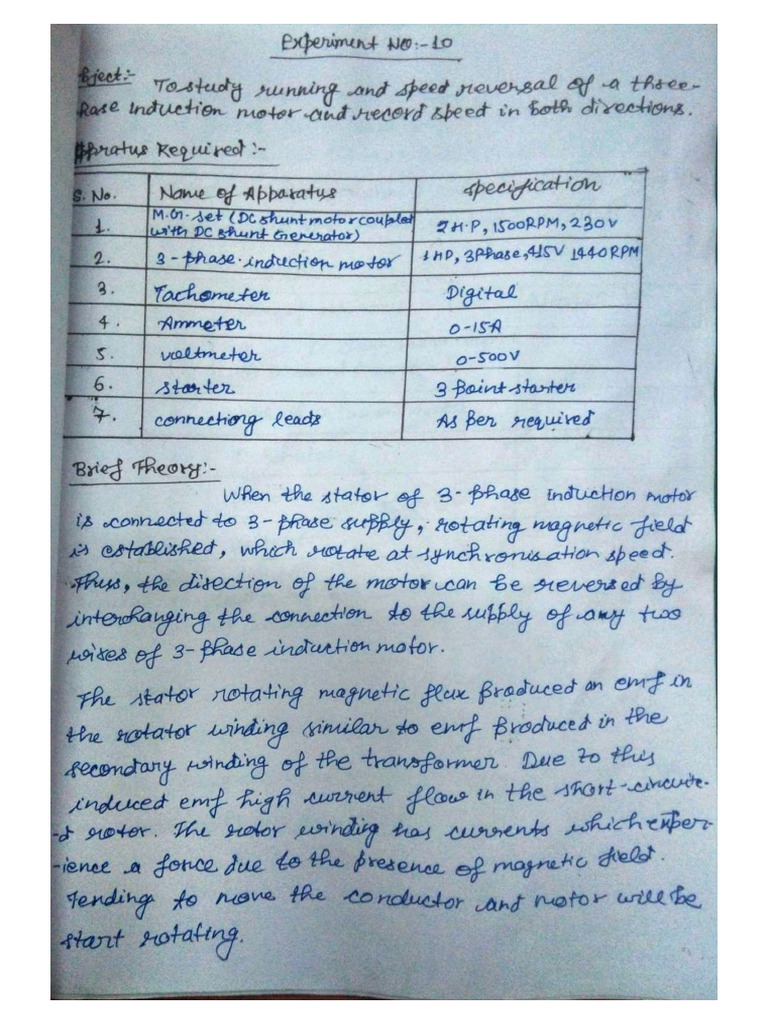 Experiment No:-10
bject:- To study running and speed reversal of a three-
hase induction motor and record speed in both directions.
ppratus Required:-
S. No. Name of Apparatus Specification
1. M.G. set (DC shunt motor couplet with DC shunt Generator) 2 H.P, 1500RPM, 230V
2. 3-phase induction motor 1HP, 3Phase, 415V 1440RPM
3. Tachometer Digital
4. Ammeter 0-15A
5. voltmeter 0-500V
6. starter 3 Point starter
7. connectiong leads As per required
Brief Theory:-
When the stator of 3-phase induction motor
is connected to 3-phase supply, rotating magnetic field
is established, which rotate at synchronisation speed.
Thus, the direction of the motor can be reversed by
interchanging the connection to the supply of any two
wires of 3-phase induction motor.
The stator rotating magnetic flux produced an emf in
the rotator winding similar to emf produced in the
secondary winding of the transformer. Due to this
induced emf high current flow in the short-circuite-
-d rotor. The rotor winding has currents which exper-
-ience a force due to the presence of magnetic field.
Tending to move the conductor and motor will be
start rotating.